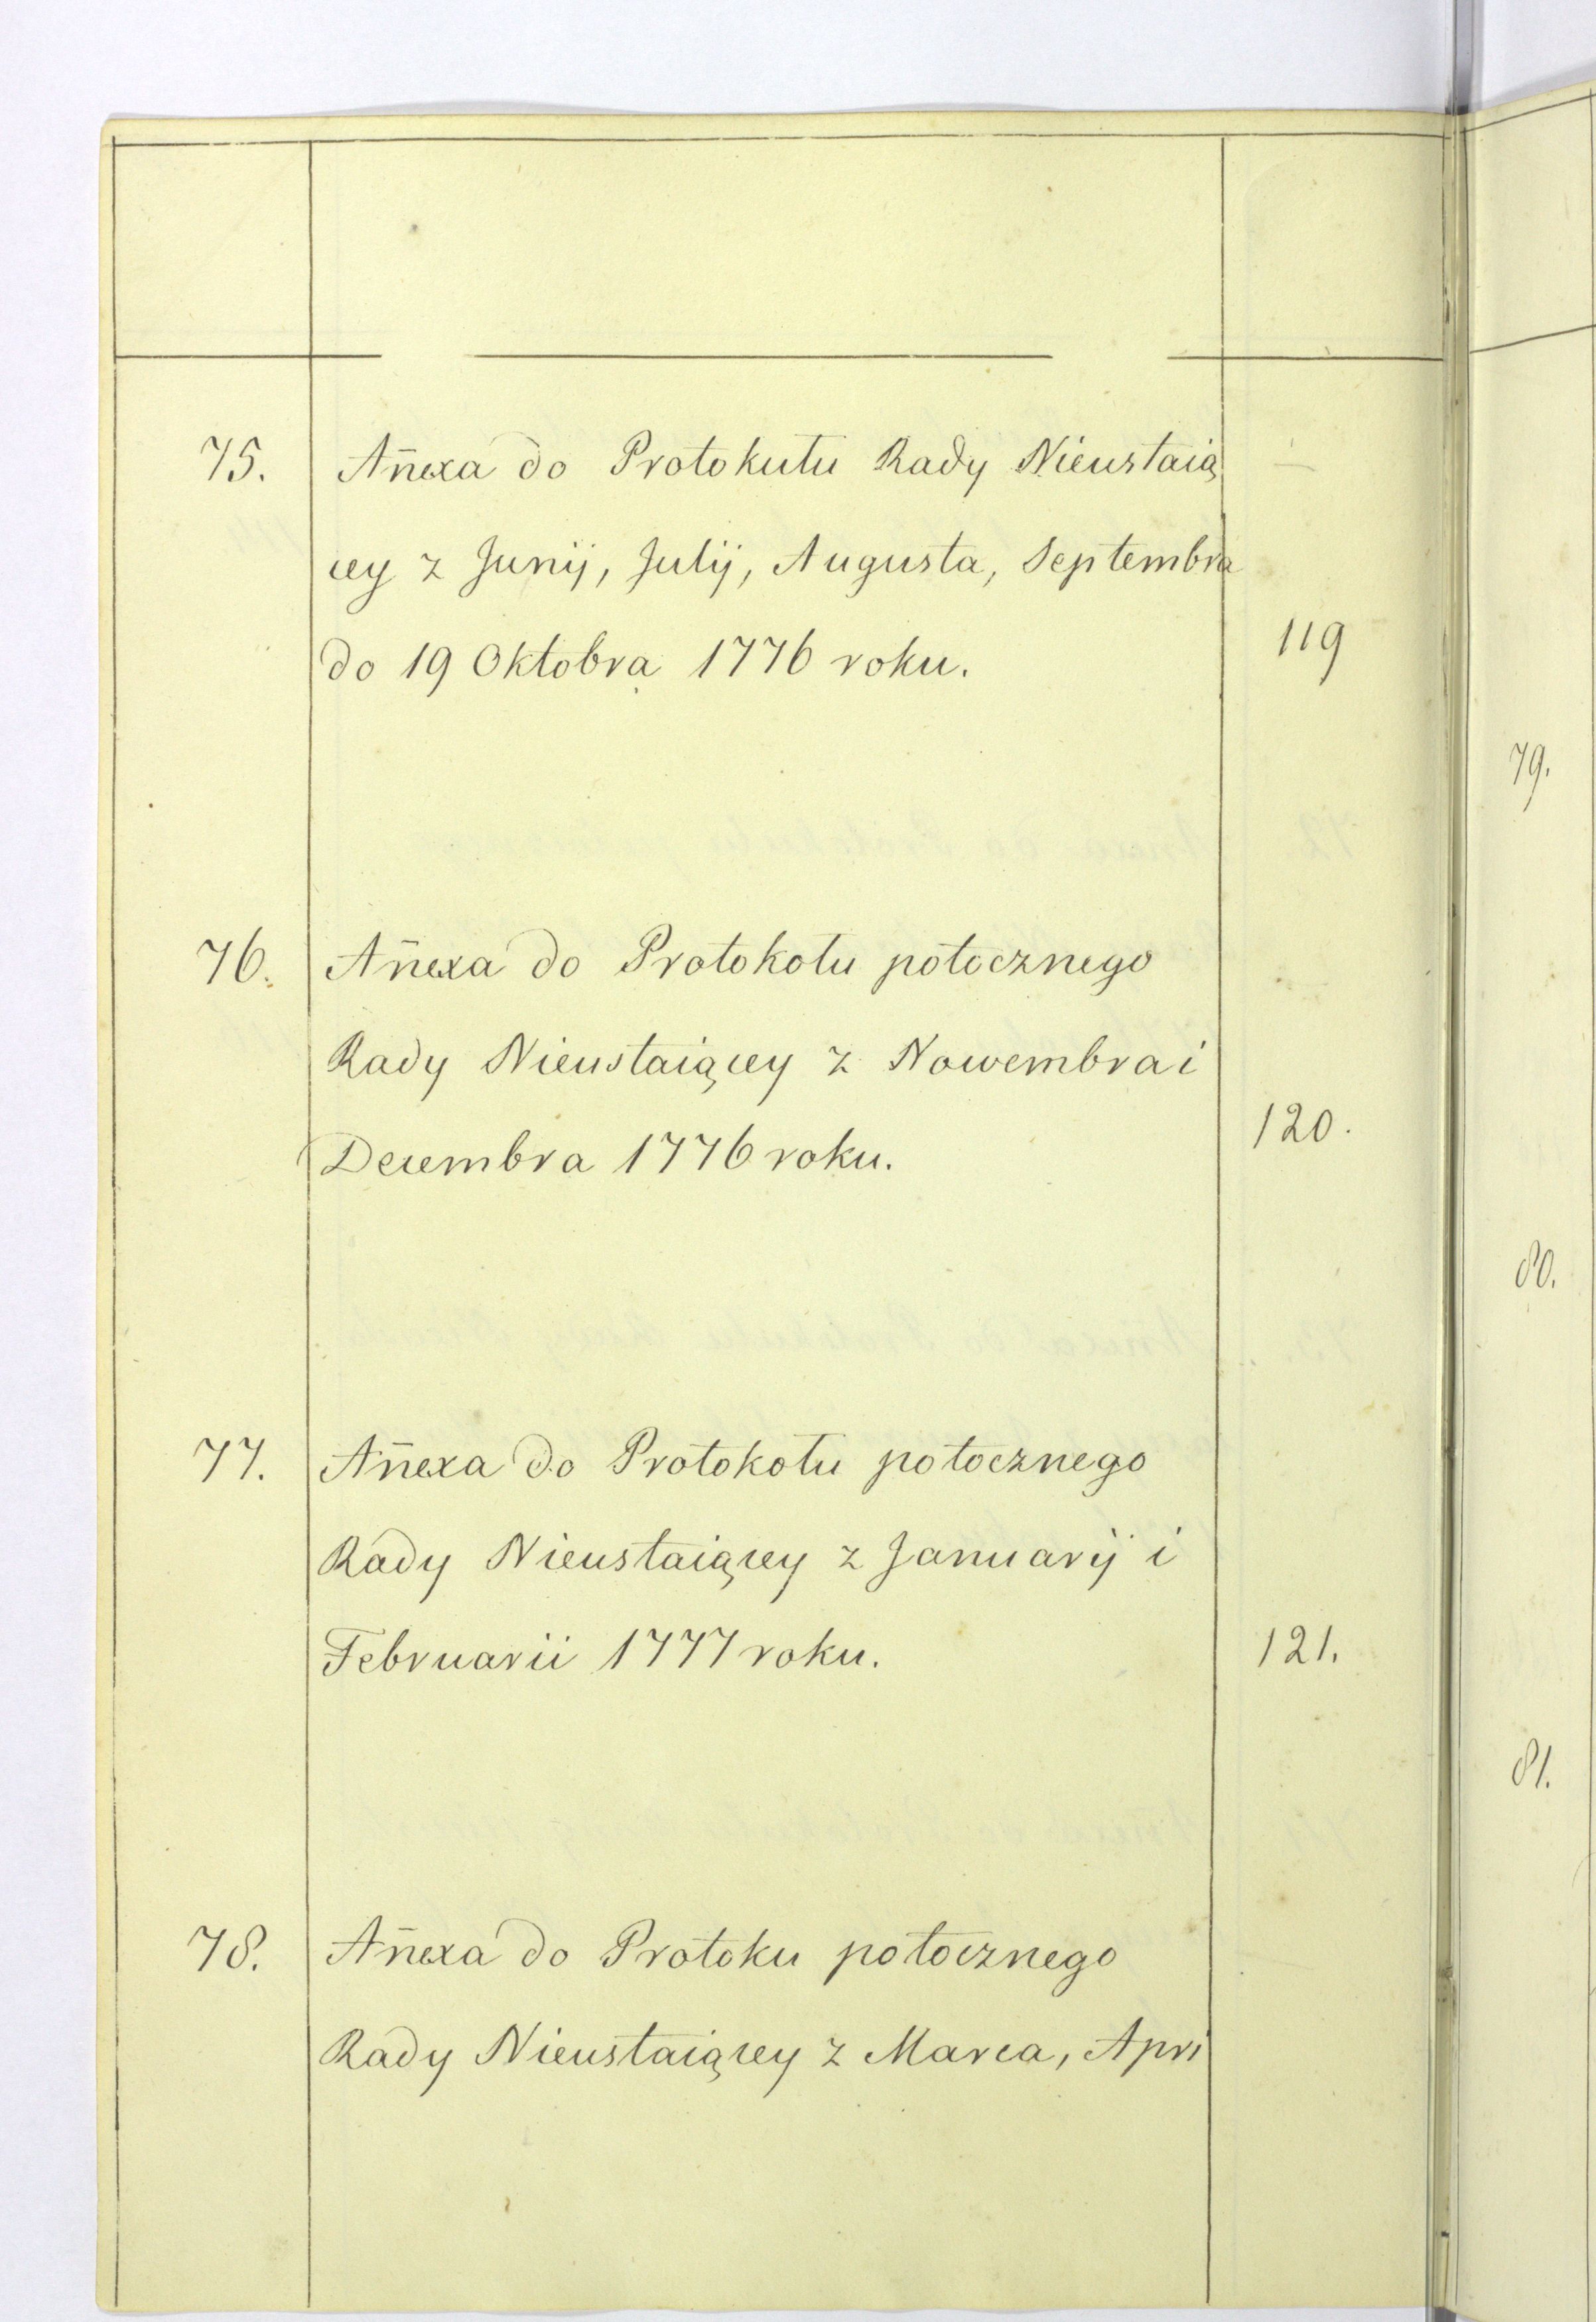 75. Añexa do Protokułu Rady Nieustaią
cey z Junij, Julij, Augusta, Septembra
do 19 Oktobra 1776 roku. 119
76. Añexa do Protokołu potocznego
Rady Nieustaiącey z Nowembra i
Decembra 1776 roku. 120.
77. Añexa do Protokołu potocznego
Rady Nieustaiącey z Januarij i
Februarii 1777 roku. 121.
78. Añexa do Protoku potocznego
Rady Nieustaiącey z Marca, Apri
79.
80.
81.